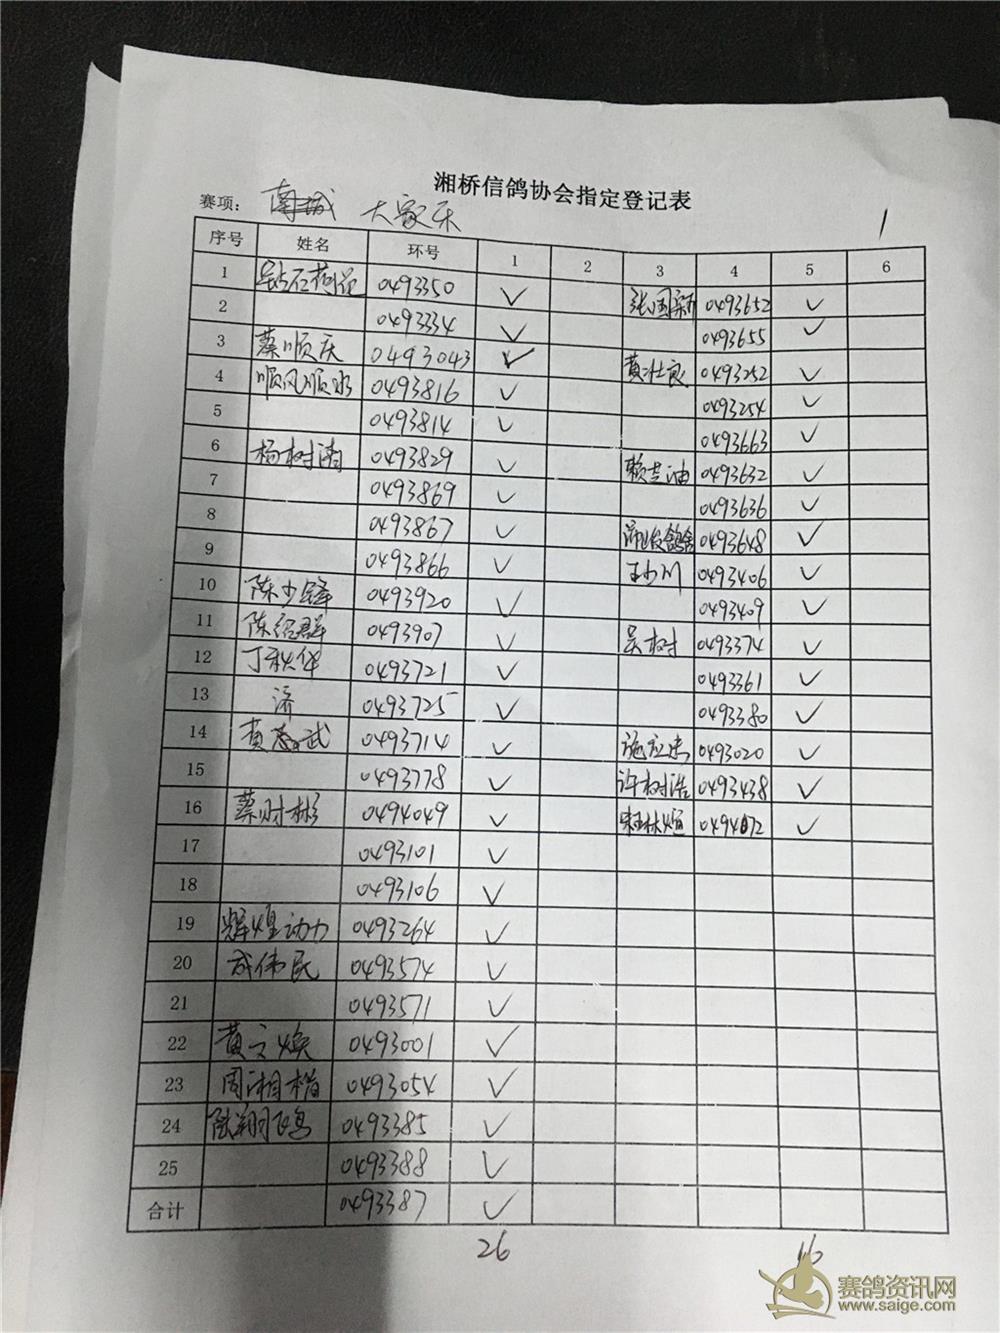 湘桥信鸽协会指定登记表
赛项: 南城 大家乐 1
序号 姓名 环号 1 2 3 4 5 6
1 0493350 ✓ 张国新 0493652 ✓
2 0493334 ✓ 0493655 ✓
3 蔡顺庆 0493043 ✓ 黄壮良 0493252 ✓
4 顺风顺水 0493816 ✓ 0493254 ✓
5 0493814 ✓ 0493663 ✓
6 杨树清 0493829 ✓ 赖吉油 0493632 ✓
7 0493869 ✓ 0493636 ✓
8 0493867 ✓ 鸽舍 0493648 ✓
9 0493866 ✓ 王少川 0493406 ✓
10 陈少锋 0493920 ✓ 0493409 ✓
11 陈绍群 0493907 ✓ 吴树 0493374 ✓
12 丁秋华 0493721 ✓ 0493361 ✓
13 济 0493725 ✓ 0493380 ✓
14 黄 武 0493714 ✓ 施 0493020 ✓
15 0493778 ✓ 许树浩 0493438 ✓
16 蔡财彬 0494049 ✓ 0494072 ✓
17 0493101 ✓
18 0493106 ✓
19 辉煌动力 0493264 ✓
20 成伟民 0493574 ✓
21 0493571 ✓
22 黄立焕 0493001 ✓
23 周湘楷 0493054 ✓
24 陆翔飞鸟 0493385 ✓
25 0493388 ✓
合计 0493387 ✓
26 16
赛鸽资讯网
www.saige.com